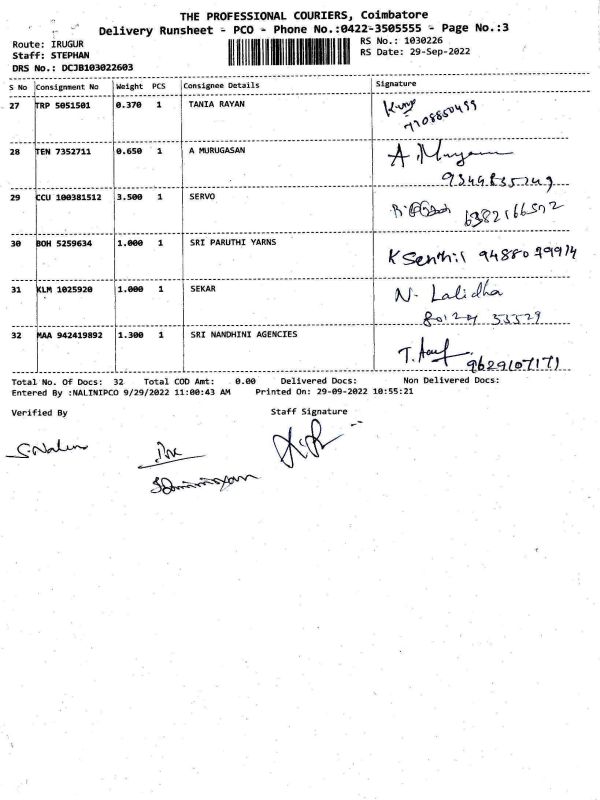 THE PROFESSIONAL COURIERS, Coimbatore
Delivery Runsheet - PCO - Phone No.:0422-3505555 - Page No.:3
Route: IRUGUR RS No.: 1030226
Staff: STEPHAN RS Date: 29-Sep-2022
DRS No.: DCJB103022603
S No Consignment No Weight PCS Consignee Details Signature
27 TRP 5051501 0.370 1 TANIA RAYAN
7708850499
28 TEN 7352711 0.650 1 A MURUGASAN A.
29 CCU 100381512 3.500 1 SERVO
6382166502
30 BOH 5259634 1.000 1 SRI PARUTHI YARNS K Senthil 9488079914
31 KLM 1025920 1.000 1 SEKAR N. Lalidha
80124 33529
32 MAA 942419892 1.300 1 SRI NANDHINI AGENCIES T.
9629107171
Total No. Of Docs: 32 Total COD Amt: 0.00 Delivered Docs: Non Delivered Docs:
Entered By :NALINIPCO 9/29/2022 11:00:43 AM Printed On: 29-09-2022 10:55:21
Verified By Staff Signature
S.Nalini